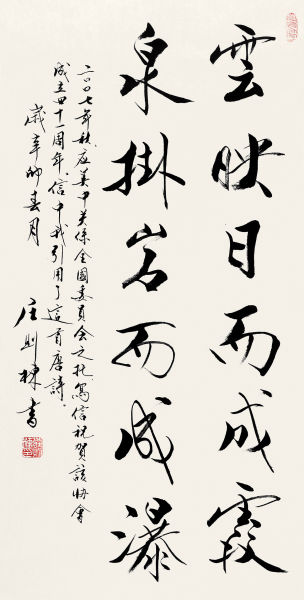 雲映日而成霞
泉掛岩而成瀑
二〇〇七年秋,应美中关係全國委員會之托寫信祝賀該协會
成立四十一周年,信中我引用了這首唐詩.
歲辛卯春月
庄則棟書